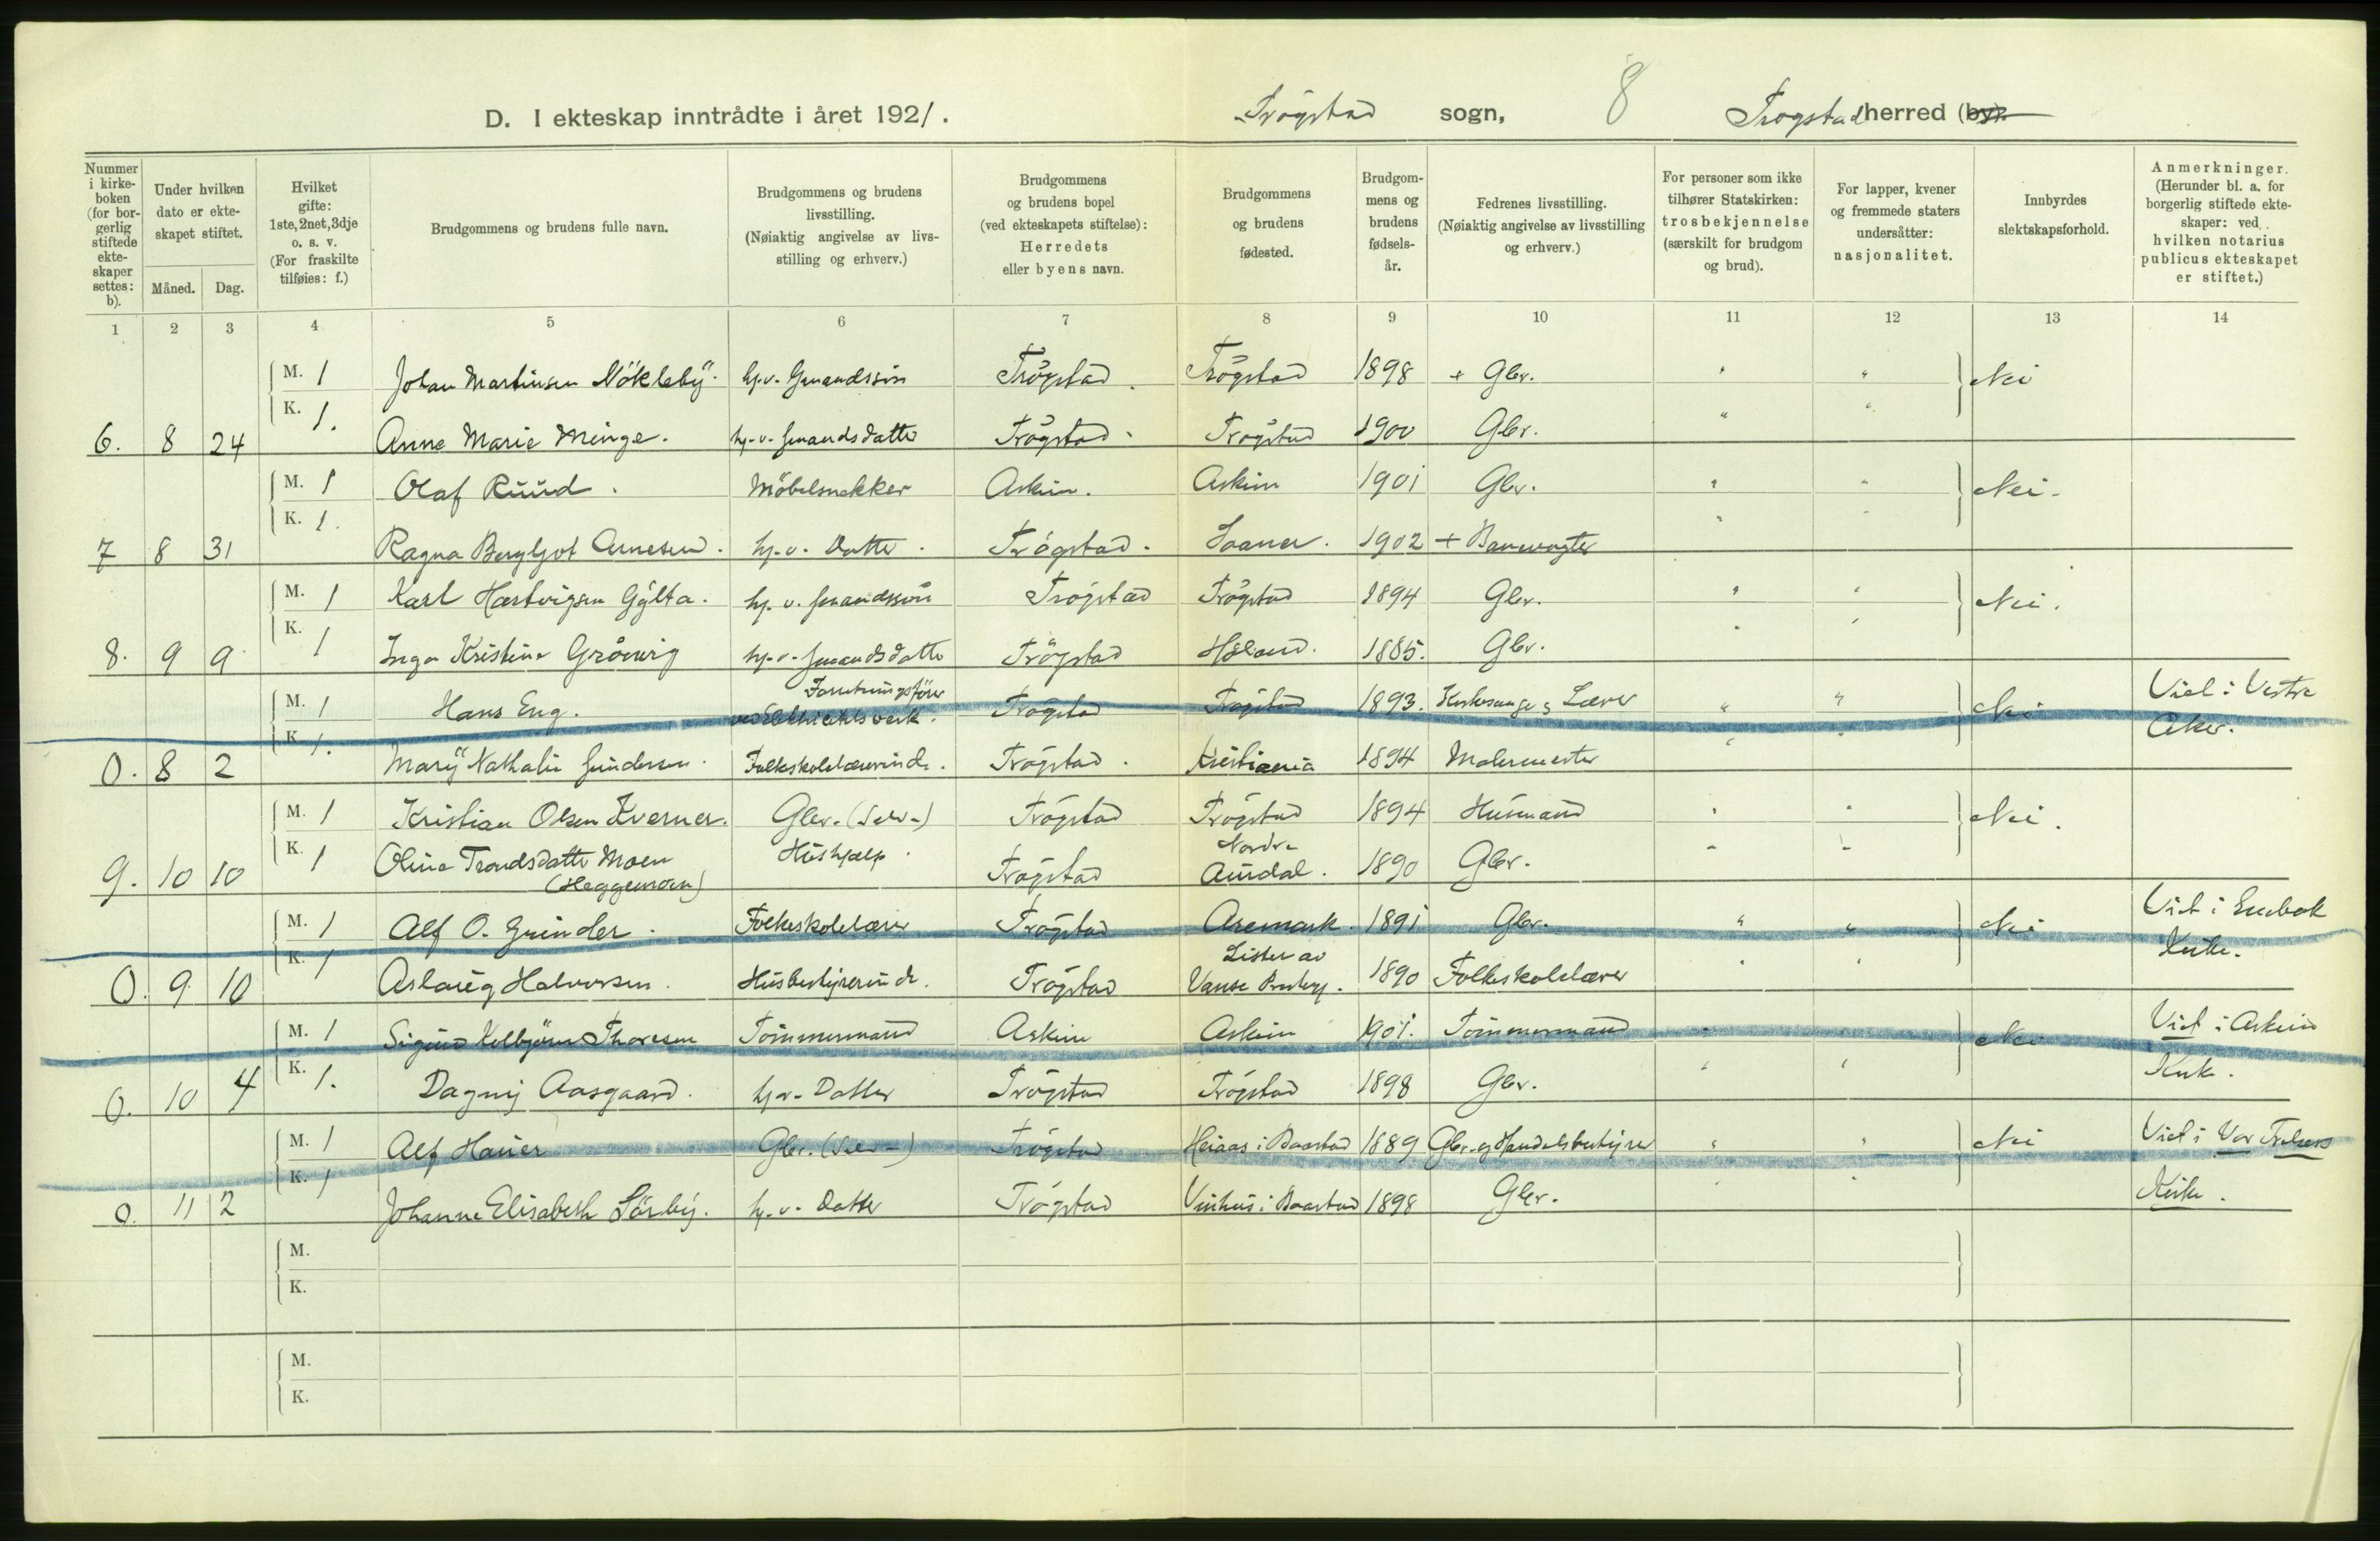 D. I ekteskap inntrådte i året 1921.
Trögstad sogn, 8 Trögstad herred (by).
Nummer i kirkeboken (for borgerlig stiftede ekteskaper settes: b).
Under hvilken dato er ekteskapet stiftet.
Måned. Dag.
Hvilket gifte: 1ste, 2net, 3dje o. s. v. (For fraskilte tilføies: f.)
Brudgommens og brudens fulle navn.
Brudgommens og brudens livsstilling. (Nøiaktig angivelse av livsstilling og erhverv.)
Brudgommens og brudens bopel (ved ekteskapets stiftelse): Herredets eller byens navn.
Brudgommens og brudens fødested.
Brudgommens og brudens fødselsår.
Fedrenes livsstilling. (Nøiaktig angivelse av livsstilling og erhverv.)
For personer som ikke tilhører Statskirken: trosbekjennelse (særskilt for brudgom og brud).
For lapper, kvener og fremmede staters undersåtter: nasjonalitet.
Innbyrdes slektskapsforhold.
Anmerkninger. (Herunder bl. a. for borgerlig stiftede ekteskaper: ved hvilken notarius publicus ekteskapet er stiftet.)
1 2 3 4 5 6 7 8 9 10 11 12 13 14
M. 1 Johan Martinsen Nökleby. hj.v. Gmandssön Trögstad. Trögstad 1898 + Gbr. " " Nei
6. 8 24 K. 1. Anne Marie Minge. hj.v. Gmandsdatter Trögstad. Trögstad 1900 Gbr. " "
M. 1 Olaf Ruud. Möbelsnekker Askim. Askim 1901 Gbr. " " Nei.
7 8 31 K. 1. Ragna Bergljot Arnesen. hj.v. Datter. Trögstad. Saaner. 1902 + Banevogter " "
M. 1 Karl Hartvigsen Gylta. hj.v. Gmandssön Trögstad Trögstad 1894 Gbr. " " Nei.
8. 9 9 K. 1 Inga Kristine Grönvig hj.v. Gmandsdatter Trögstad Höland. 1885. Gbr. " "
M. 1 Hans Eng. Forretningsförer ved Elektricitetsverk. Trögstad Trögstad 1893. Kirkesanger og Lærer " " Nei Viet i Vestre Aker.
0. 8 2 K. 1. Mary Nathalie Gundersen. Folkeskolelærerinde. Trögstad. Kristiania 1894 Malermester " "
M. 1 Kristian Olsen Kverner. Gbr. (Selv-) Trögstad Trögstad 1894 Husmand " " Nei.
9. 10 10 K. 1 Oline Trondsdatter Moen (Heggemoen) Hushjælp. Trögstad Nordre Aurdal. 1890 Gbr. " "
M. 1 Alf O. Grinder. Folkeskolelærer Trögstad Aremark. 1891 Gbr. " " Nei Viet i Enebak Kirke.
0. 9. 10 K. 1 Aslaug Halvorsen. Husbestyrerinde. Trögstad Lister av Vanse Prestegj. 1890 Folkeskolelærer " "
M. 1 Sigurd Kolbjörn Thoresen Tömmermand Askim Askim 1901. Tömmermand " " Nei Viet i Askim Kirke.
0. 10 4 K. 1. Dagny Aasgaard. hj.v. Datter Trögstad Trögstad 1898 Gbr. " "
M. 1 Alf Hauer Gbr. (Selv-) Trögstad Heiaas i Baastad 1889 Gbr. og Handelsbestyrer " " Nei Viet i Vor Frelsers Kirke.
0. 11 2 K. 1 Johanne Elisabeth Sörby. hj.v. Datter Trögstad Baastad 1898 Gbr. " "
M.
K.
M.
K.